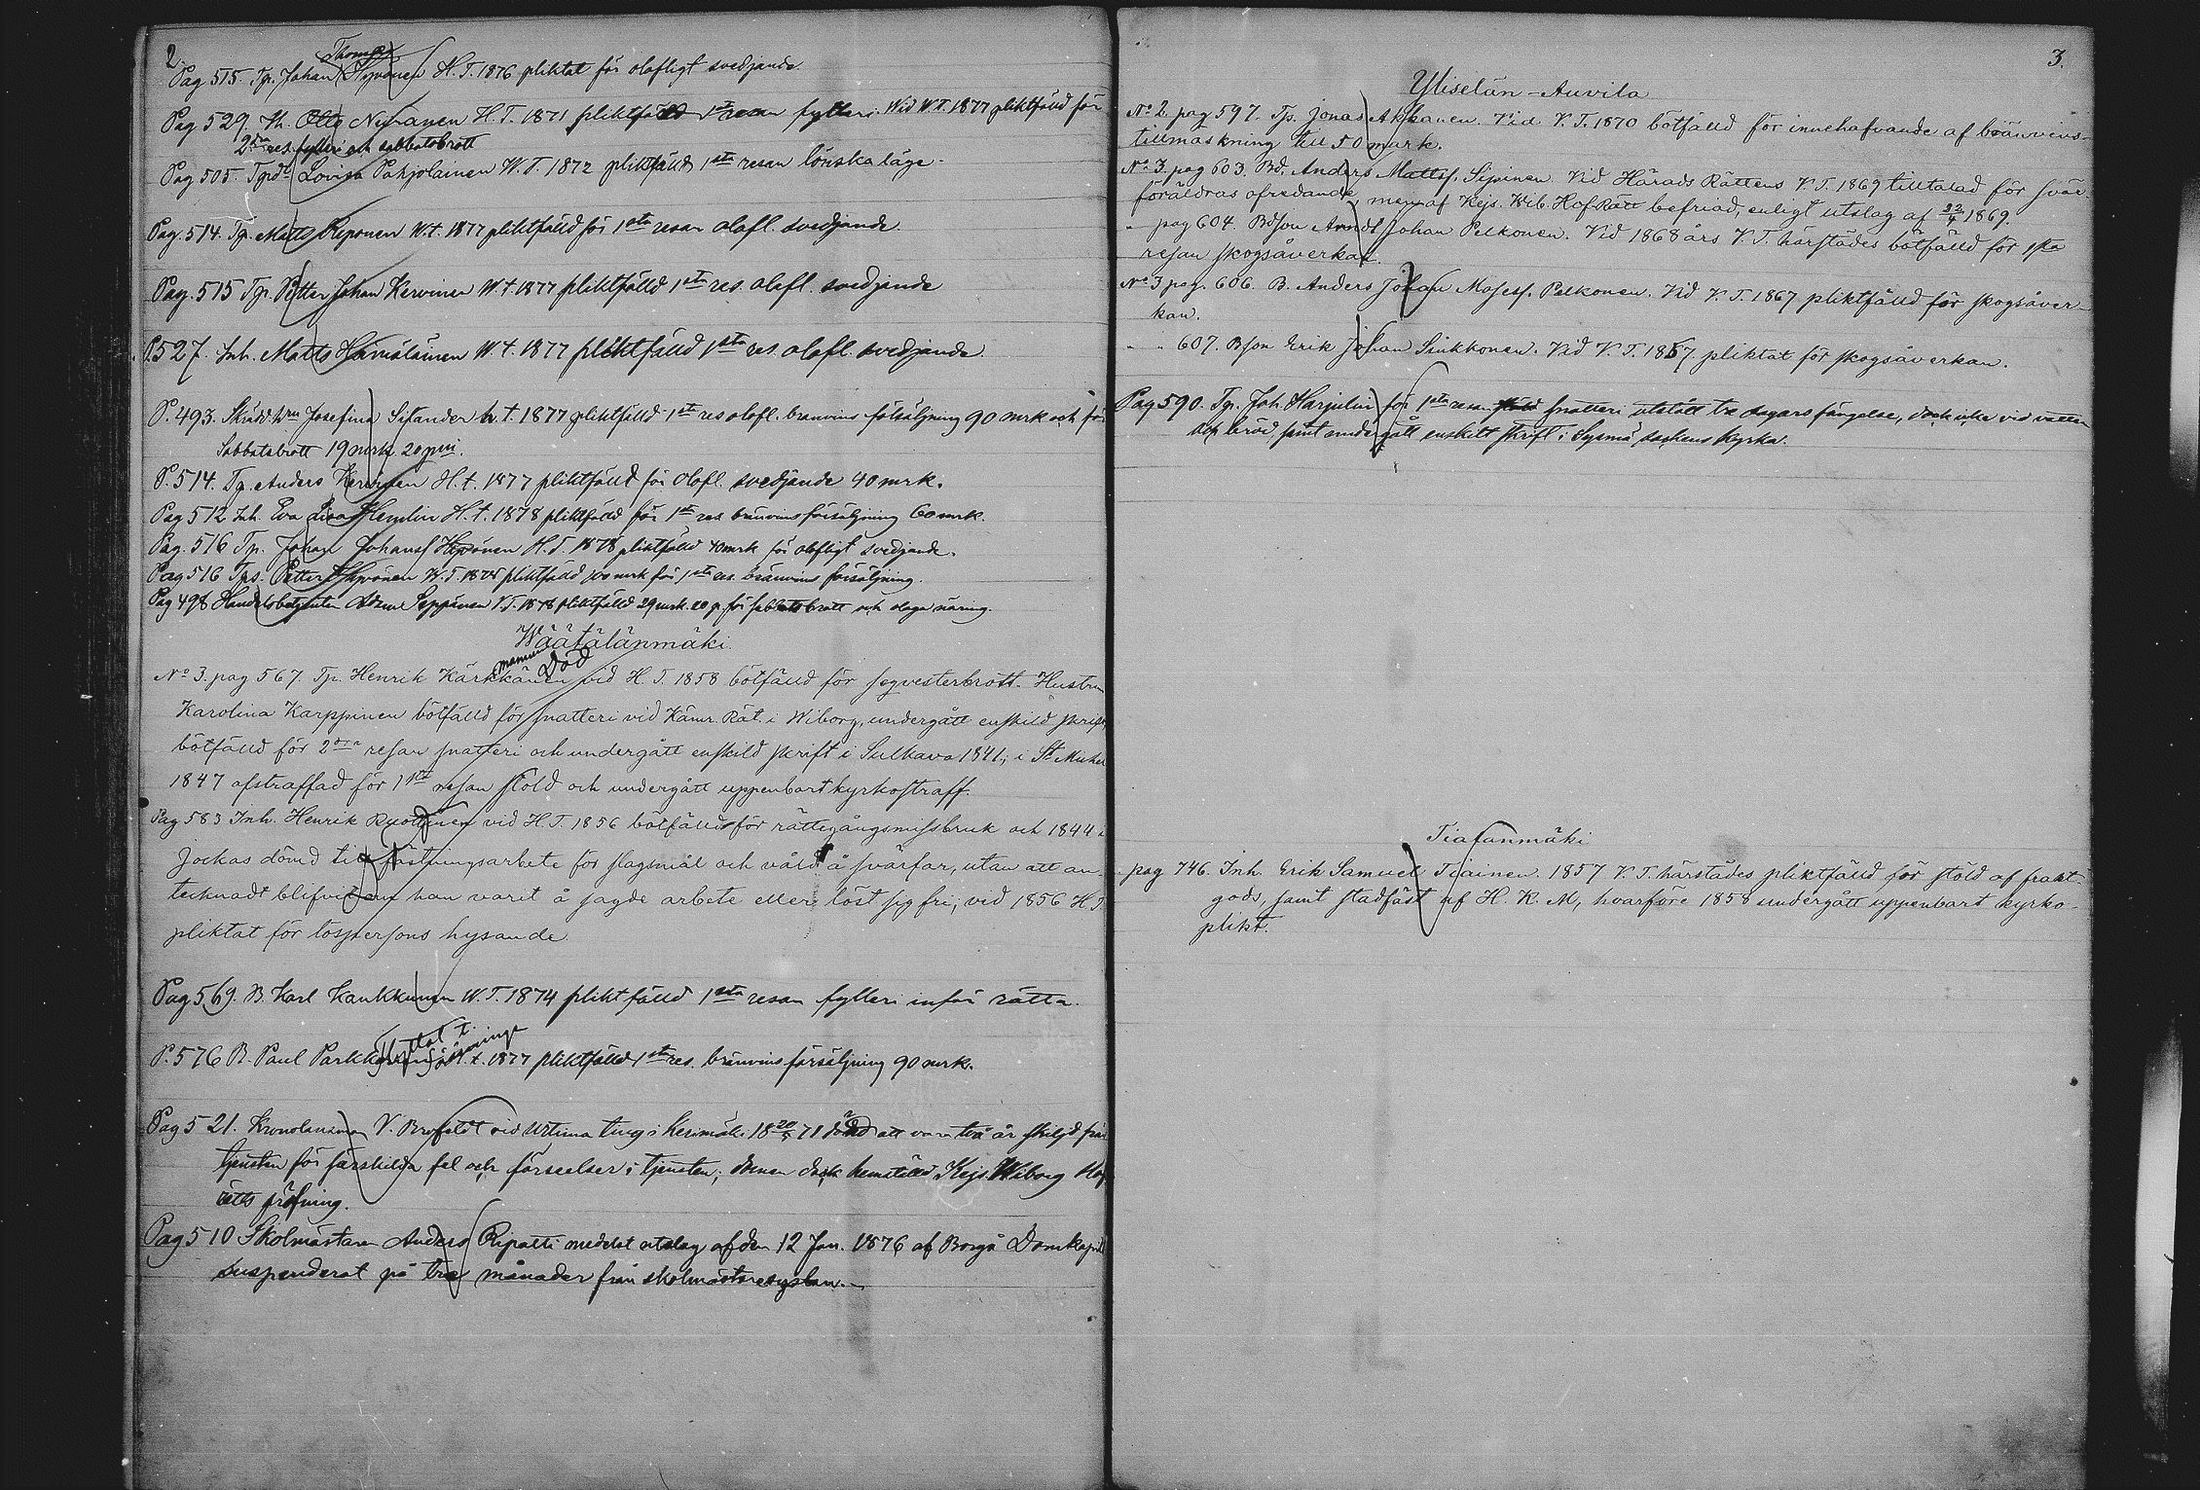 2.
Thomas
Pag 515. Tp. Johan Hyvönen H. T. 1876 pliktat för olofligt svedjande
Pag 529. Ih. Otto Nyranen H. T. 1871 pliktfälld 1sta resan fylleri. Wid W. T. 1877 pliktfälld för
2dra res. fylleri och sabbatsbrott
Pag 505. Tpdr Lovisa Pohjolainen W. T. 1872 pliktfälld 1sta resan lönskaläge.
Pag. 514. Tp. Matts Reponen W. t. 1877 pliktfälld för 1sta resan olofl. svedjande
Pag. 515 Tp. Petter Johan Kervinen W. t. 1877 pliktfälld 1sta res. olofl. svedjande
P. 527. Inh. Matts Hämäläinen W. t. 1877 pliktfälld 1sta res. olofl. svedjande
P. 493. Skrädd. hru Josefina Silander h. t. 1877 pliktfälld 1sta res olofl. bränvins försäljning 90 mrk och för
Sabbatsbrott 19 mrk 20 pni.
P. 514. Tp. Anders Kervinen H. t. 1877 pliktfälld för olofl. svedjande 40 mrk.
Pag 512 Inh. Eva Lisa Hemlin H. t. 1878 pliktfälld för 1sta res. bränvinsförsäljning 60 mrk.
Pag. 516 Tp. Johan Johansf. Hyvönen H. T. 1878 pliktfälld 40 mrk för olofligt svedjande.
Pag 516 Tps. Petter Hyvönen W. T. 1878 pliktfälld 100 mrk för 1sta res. bränvins försäljning.
Pag 498 Handelsbetjenten Adam Seppänen V. T. 1878 pliktfälld 29 mrk. 20 p. för sabbatsbrott och olaga näring.
Wäätälänmäki
mannen Död
No 3. pag 567. Tp. Henrik Kärkkänen vid H. T. 1858 bötfälld för seqvesterbrott. Hustrun
Karolina Karppinen bötfälld för snatteri vid Kämr. Rät. i Wiborg, undergått enskild skrift,
bötfälld för 2dra resan snatteri och undergått enskild skrift i Sulkava 1841, i St Michel
1847 afstraffad för 1sta resan stöld och undergått uppenbart kyrkostraff.
Pag 583 Inh. Henrik Ruottinen vid H. T. 1856 bötfälld för rättegångsmissbruk och 1844 i
Jockas dömd till fästningsarbete för slagsmål och våld å svärfar, utan att an-
tecknadt blifvit om han varit å sagde arbete eller löst sig fri; vid 1856 H. T.
pliktat för lospersons hysande
Pag 569. B. Karl Kaukkunen W. T. 1874 pliktfälld 1sta resan fylleri inför rätta.
Flyttat t.
P. 576 B. Paul Parkkonen H. t. 1877 pliktfälld 1sta res. bränvins försäljning 90 mrk.
Pag 521. Kronolänsman V. Brofeldt vid Urtima ting i Kerimäki 18 20/5 71 dömd att vara två år skiljd från
tjensten för särskilda fel och förseelser i tjensten; domen dock hemställd Kejs. Wiborg Hof
rätts pröfning.
Pag 510 Skolmästaren Anders Ripatti medelst utslag af den 12 Jan. 1876 af Borgå Domkapitel
suspenderat på tre månader från skolmästaresyslan.
3.
Yliselän-Auvila
No 2. pag 597. Tp. Jonas Akkanen. Vid V. T. 1870 bötfälld för innehafvande af bränvins-
tillmäskning till 50 mark.
No 3. pag 603. Bd. Anders Mattsf. Sipinen. Vid Härads Rättens V. T. 1869 tilltalad för svär-
föräldras ofredande, men af Kejs. Wib. Hof Rätt befriad, enligt utslag af 22/4 1869.
" pag 604. Bdson Anders Johan Pelkonen. Vid 1868 års V. T. härstädes bötfälld för 1sta
resan skogsåverkan.
No 3 pag. 606. B. Anders Johan Mosesf. Pelkonen. Vid V. T. 1867 pliktfälld för skogsåver-
kan.
" " 607. Bson Erik Johan Sinkkonen. Vid V. T. 1867 pliktat för skogsåverkan.
Pag 590. Tp. Joh. Harjulin för 1sta resan stöld snatteri utstått tre dagars fängelse, dock icke vid vatten
och bröd samt undergått enskilt skrift i Sysmä sockens kyrka.
Tiaisanmäki
pag 746. Inh. Erik Samuel Tiainen. 1857 V. T. härstädes pliktfälld för stöld af frakt-
gods, samt stadfäst af H. K. M, hvarföre 1858 undergått uppenbart kyrko-
plikt.